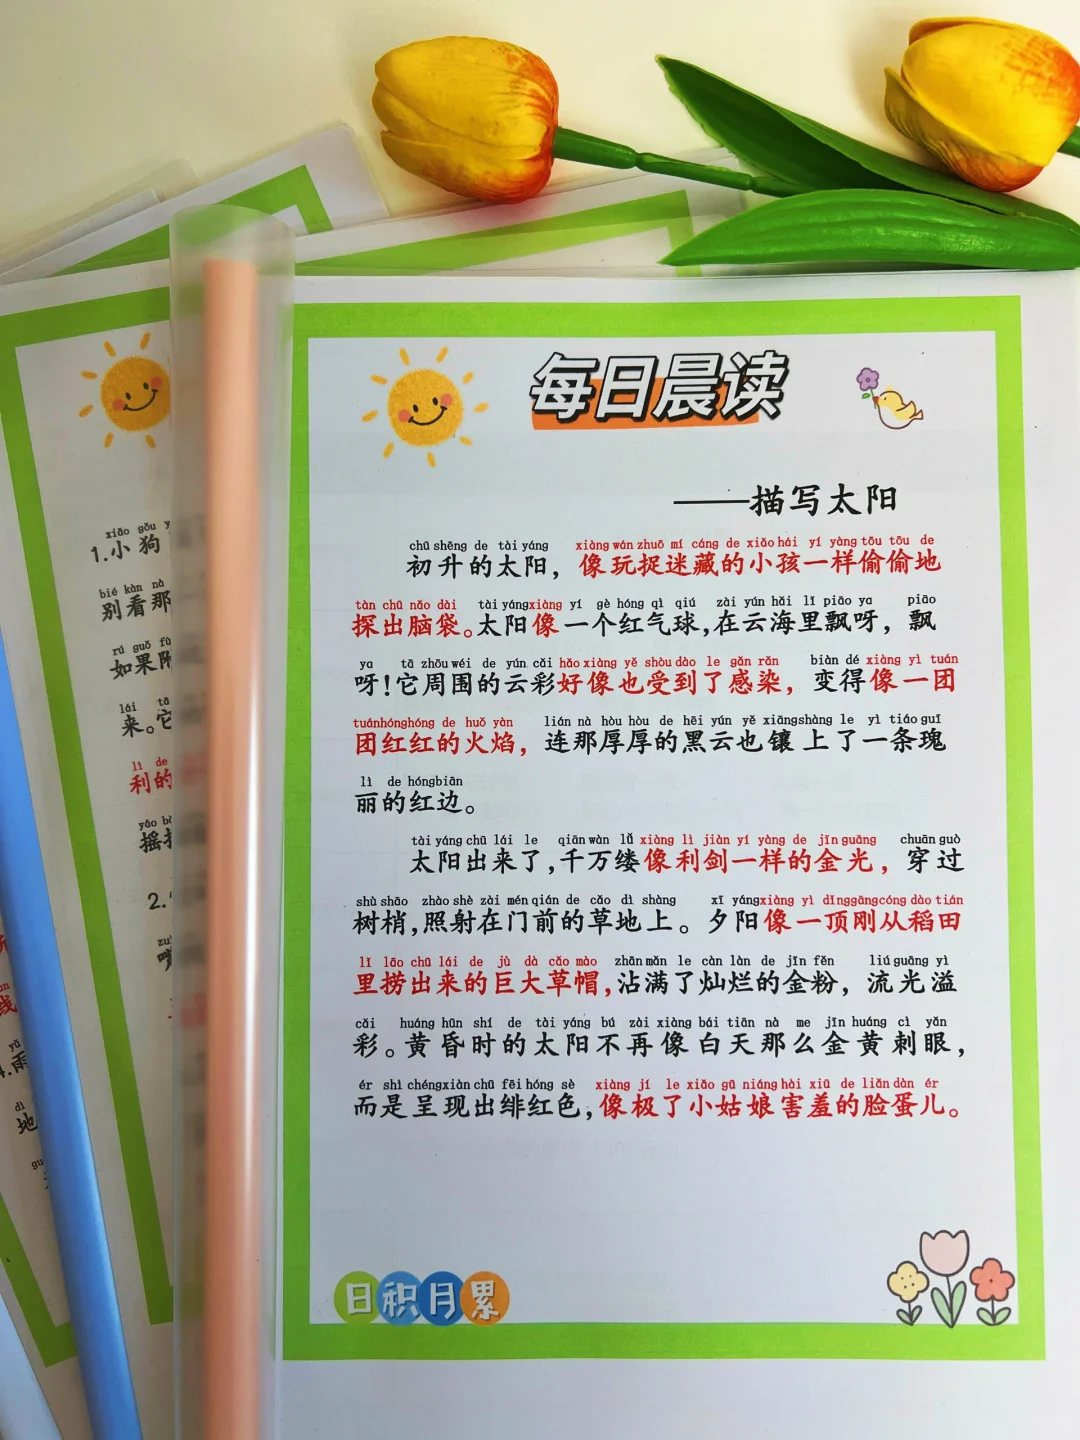 每日晨读
——描写太阳
chū shēng de tài yáng xiàng wán zhuō mí cáng de xiǎo hái yí yàng tōu tōu de
初升的太阳，像玩捉迷藏的小孩一样偷偷地
tàn chū nǎo dài tài yáng xiàng yí gè hóng qì qiú zài yún hǎi lǐ piāo ya piāo
探出脑袋。太阳像一个红气球,在云海里飘呀，飘
ya tā zhōu wéi de yún cǎi hǎo xiàng yě shòu dào le gǎn rǎn biàn dé xiàng yì tuán
呀!它周围的云彩好像也受到了感染，变得像一团
tuán hóng hóng de huǒ yàn lián nà hòu hòu de hēi yún yě xiāng shàng le yì tiáo guī
团红红的火焰，连那厚厚的黑云也镶上了一条瑰
lì de hóng biān
丽的红边。
tài yáng chū lái le qiān wàn lǚ xiàng lì jiàn yí yàng de jīn guāng chuān guò
太阳出来了,千万缕像利剑一样的金光，穿过
shù shāo zhào shè zài mén qián de cǎo dì shàng xī yáng xiàng yì dǐng gāng cóng dào tián
树梢,照射在门前的草地上。夕阳像一顶刚从稻田
lǐ lāo chū lái de jù dà cǎo mào zhān mǎn le càn làn de jīn fěn liú guāng yì
里捞出来的巨大草帽,沾满了灿烂的金粉，流光溢
cǎi huáng hūn shí de tài yáng bú zài xiàng bái tiān nà me jīn huáng cì yǎn
彩。黄昏时的太阳不再像白天那么金黄刺眼，
ér shì chéng xiàn chū fēi hóng sè xiàng jí le xiǎo gū niáng hài xiū de liǎn dàn ér
而是呈现出绯红色,像极了小姑娘害羞的脸蛋儿。
日积月累
xiǎo gǒu
1.小狗
bié kàn nà
别看那
rú guǒ
如果
lái tā
来。它
lì de
利的
yáo
摇
2.